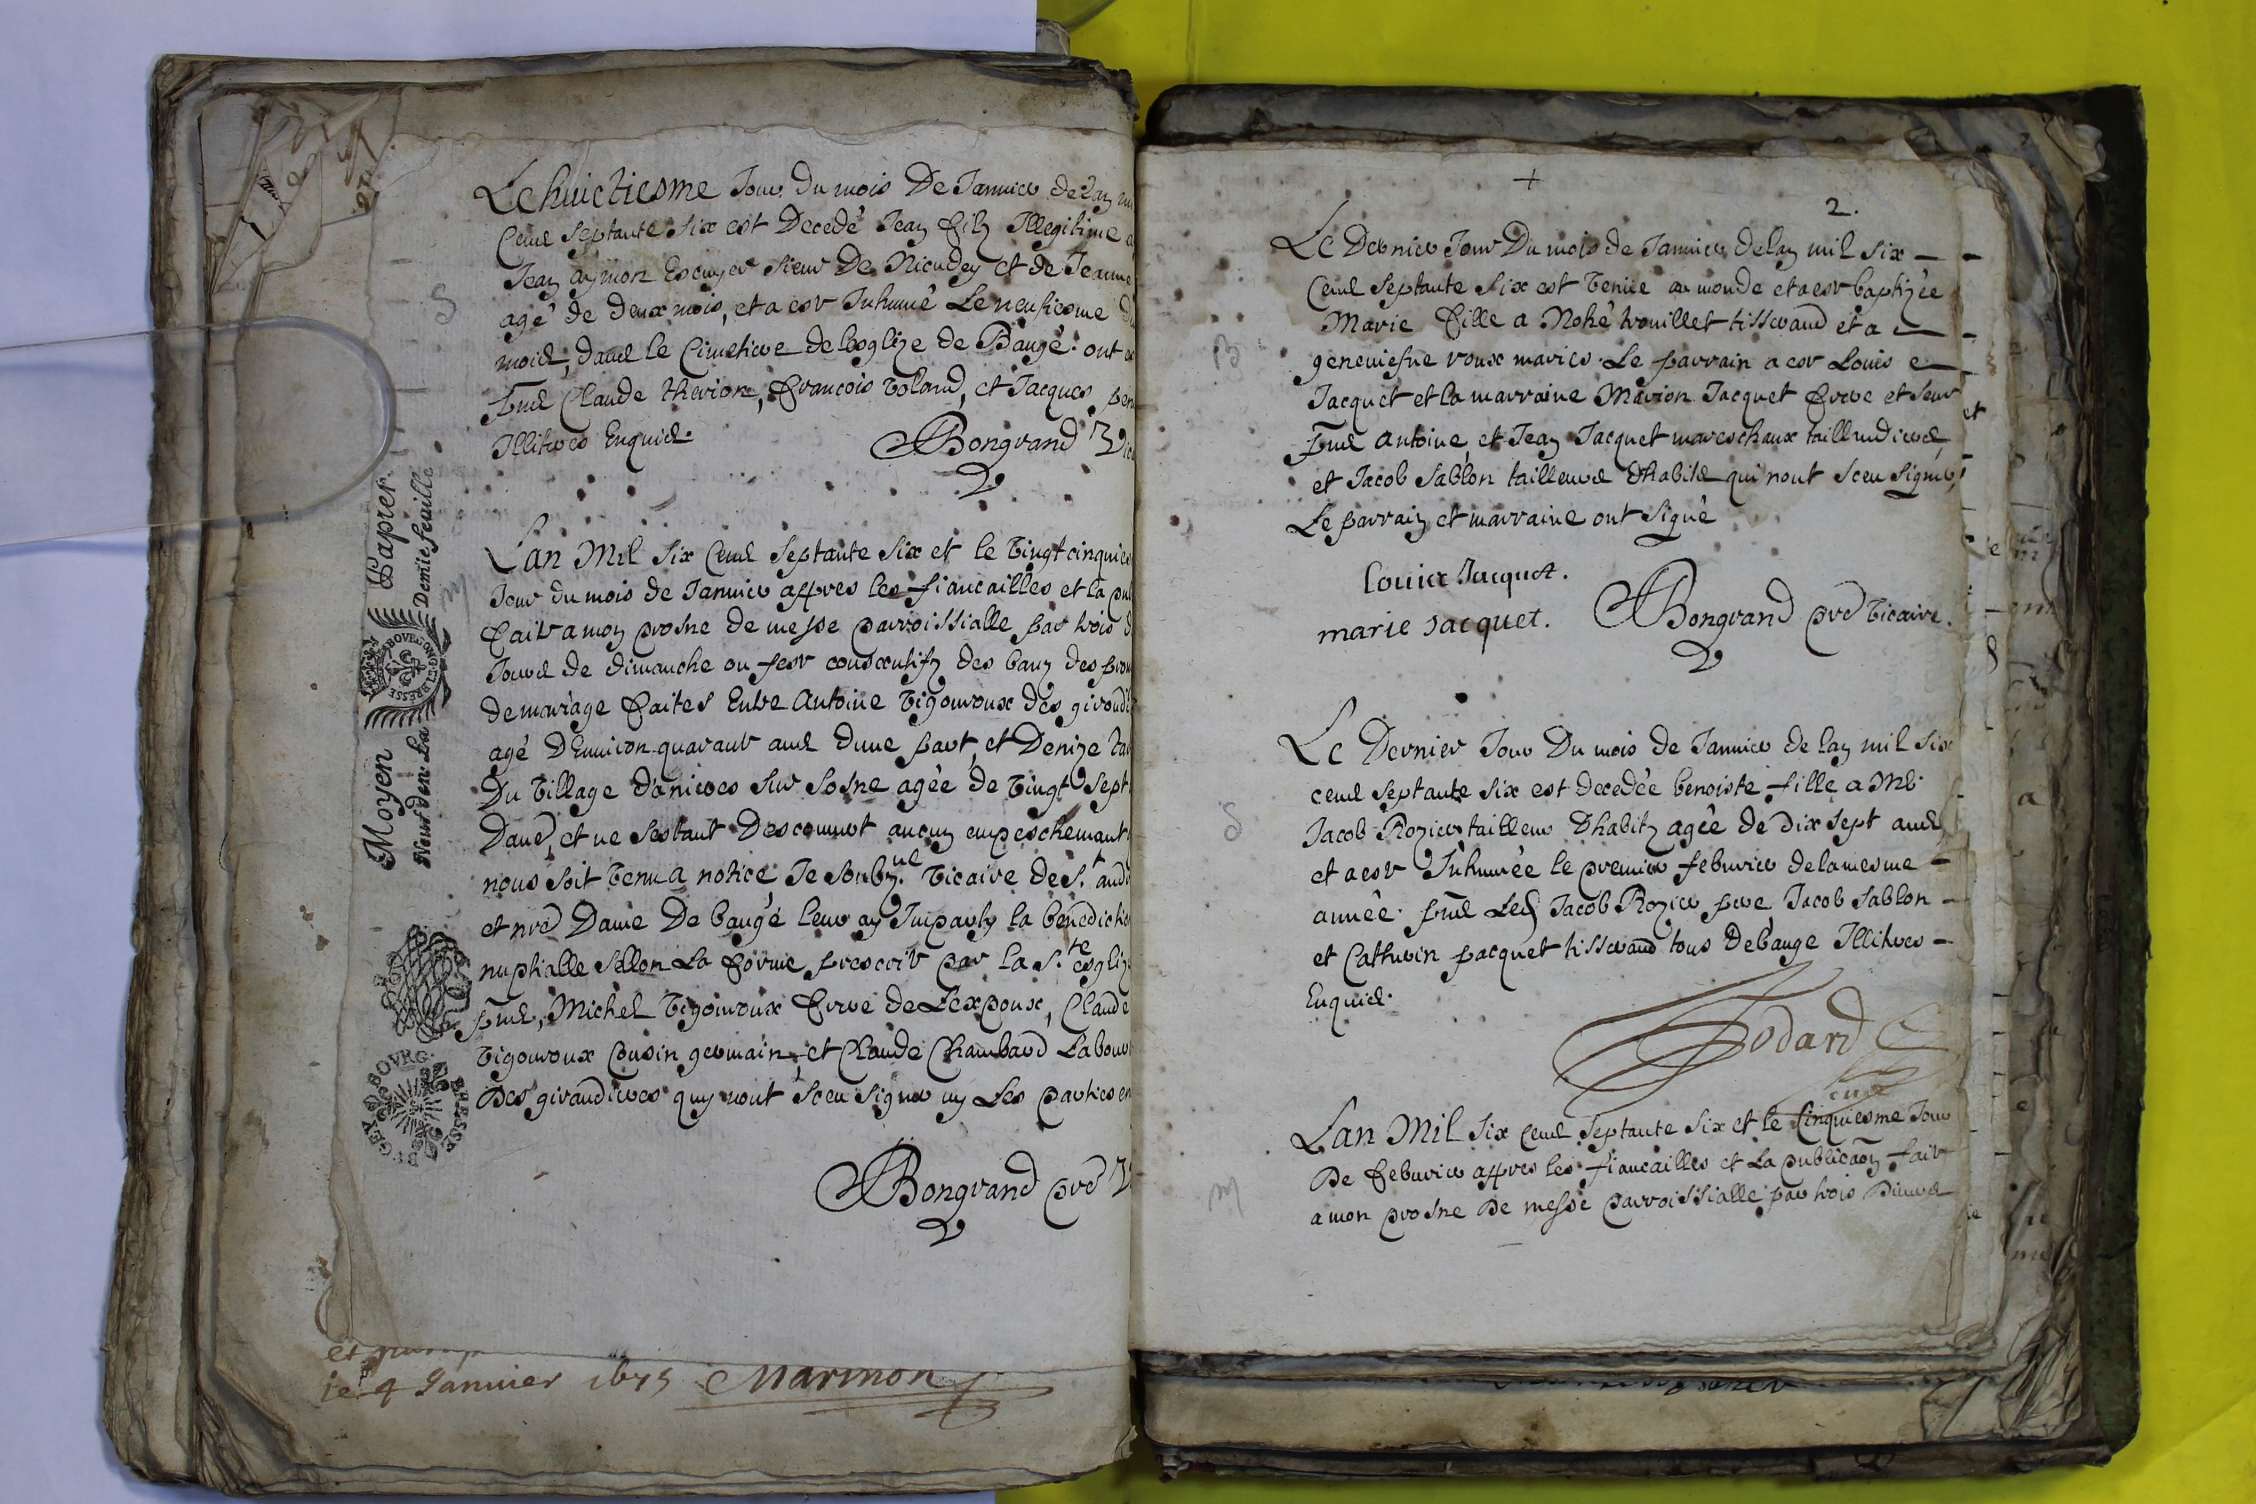 Le huictiesme Jour du mois De Janvier de lan
Cens Septante Six est Decedé Jean fils Illegitime
Jean aymon Escuyer Sieur De et de Jeanne
agé de deux mois, et a esté Inhumé Le neufiesme
mois, dans le Cimetiere de leglize de Baugé. ont
pns Claude therion, françois voland, et Jacques
Illitres Enquis.
Bongrand
S
Moyen Papier
Neuf den La Demie feuille
BOVRG BRESSE BVGEY
Lan Mil Six Cens Septante Six et le vingt cinquies
Jour du mois de Janvier appres les fiancailles et la
faite a mon prosne de messe parroissialle par trois
Jours de dimanche ou feste consecutifz des bans des
de mariage faites Entre Antoine vigouroux des
agé d'Environ quarante ans d'une part, et Denize
Du village d'anieres sur Sosne agée de vingt Sept
Dans, et ne sestant descouvert aucun empeschemant
nous soit venu a notice Je Soubz.né vicaire de S.t
et nre Dame De baugé leur ay Imparty la benedictio
nuptialle Sellon La forme prescrite par la S.te esglize
pns, Michel vigouroux frere de Lexpoux, Claude
vigouroux Cousin germain, et Claude Chambard Labour
Des girandieres quy nont sceu signer ny Les parties
Bongrand pre
m
le 4 Janvier 1675 Marmon
2.
Le Dernier Jour Du mois de Janvier de lan mil Six
Cens Septante Six est venue au monde et a esté baptizée
Marie fille a Nohé trouillet tisserand et a
geneviefve roux mariés. Le parrain a esté Louis
Jacquet et la marraine Marion Jacquet frere et Seur
pns Antoine et Jean Jacquet mareschaux taillandiers,
et Jacob Sablon tailleurs d'habits qui nont sceu signer,
Le parrain et marraine ont Signé
B
louis Jacquet.
marie Jacquet.
Bongrand pre vicaire.
Le Dernier Jour Du mois de Janvier de lan mil Six
cens Septante Six est decedée benoiste fille a Me.
Jacob Rozier tailleur d'habitz agée de dix sept ans
et a esté Inhumée le premier febvrier de la mesme
année. pns Led Jacob Rozier pere Jacob Sablon
et Cathurin pacquet tisserand tous de bauge Illitres
Enquis.
S
Lan Mil Six cens Septante Six et le Cinquiesme Jour
De febvrier appres les fiancailles et La publicaon faite
a mon prosne De messe parroissialle par trois Divers
m